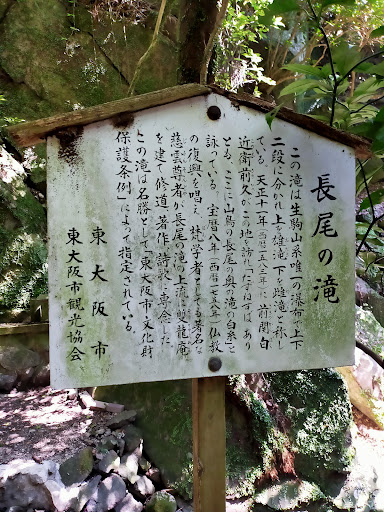 長尾の滝
この滝は生駒山系唯一の瀑布で上下
二段に分かれ上を雄滝、下を雌滝と称し
ている。天正十一年(西暦一五八三年)に前関白
近衛前久がこの地を訪れ「たずねずは、あり
とも、ここに山鳥の長尾の奥の滝の白糸」と
詠っている。宝暦八年(西暦一七五八年)仏教
の復興を唱え、梵学者としても著名な
慈雲尊者が長尾の滝の上流に双龍庵
を建て修道、著作、詩歌に専念した
この滝は名勝として「東大阪市文化財
保護条例」によって指定されている。
東大阪市
東大阪市観光協会